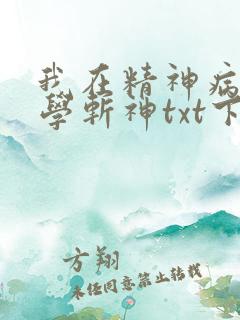 我在精神病
學斬神txt下
方翔
未经同意禁止转载